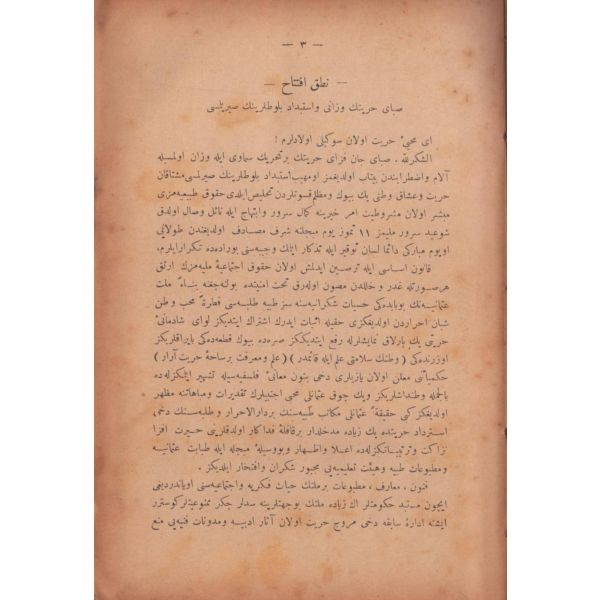 — ٣ —
— نطق افتتاح —
صبای حریتك وزانی واستبداد بلوطلرینك صیریلسی
ای محیی ٔ حریت اولان سوكیلی اولادلرم !
الشكرلله . صبای جان فزای حریتك برتحریك سماوی ایله وزان اولمسیله
آلام واضطرابندن بیتاب اولدیغمز اومهیب استبداد بلوطلرینك صیرلمسی مشتاقان
حریت وعشاق وطنی پك بیوك ومظلم قسوتلردن تخلیص ایلدی حقوق طبیعیه مزی
مبشر اولان مشروطیت امر خیرینه كمال سرور وابتهاج ایله نائل وصال اولدق
شو عید سرور ملیمز ١١ تموز یوم مبجلنه شرف مصادف اولدیغندن طولایی
اویوم مباركی دائما لسان توقیر ایله تذكار ایتمك وجیبه سنی بوراده ده تكرار ایلرم .
قانون اساسی ایله ترصین ایدلش اولان حقوق اجتماعیهٔ ملیه مزك ارتق
هرصورتله غدر و خللدن مصون اوله رق تحت امنیتده بولنه جغنه بناءً ملت
عثمانیه نك بوبابده كی حسیات شكرانیه سنه سز طبیه طلبه سی فطرةً محب وطن
شبان احراردن اولدیغكزی حقیله اثبات ایدرك اشتراك ایتدیكز لوای شادمانیٔ
حریتی پك پارلاق نمایشلرله رفع ایتدیككز صره ده بیوك قطعه ده كی بایراقلریكز
اوزرنده كی ( وطنك سلامتی علم ایله قائمدر ) ( علم ومعرفت برساحهٔ حریت آرار )
حكمیاتنی معلن اولان یازیلری دخی بتون معانیٔ فلسفیه سیله تشهیر ایتمكزله ده
بالجمله وطنداشلریكز وپك چوق عثمانلی محبی اجنبیلرك تقدیرات ومباهاتنه مظهر
اولدیغكز كبی حقیقةً عثمانلی مكاتب طبیه سنك بردارالاحرار و طلبه سنك دخی
استرداد حریتده پك زیاده مدخلدار برقافلهٔ فداكار اولدقلرینی حیرت افزا
نزاكت و ترتیباتكزله ده اعلا واظهار وبووسیلهٔ مبجله ایله طبابت عثمانیه
ومطبوعات طبیه وهیئت تعلیمیه یی مجبور شكران وافتخار ایلدیكز .
فنون ، معارف ، مطبوعات برملتك حیات فكریه واجتماعیه سنی اویاندردیغی
ایچون مستبد حكومتلر اك زیاده ملتك بوجهتلرینه سدلر چكر ممنوعیتلر كوسترر
ایشته ادارهٔ سابقه دخی مروج حریت اولان آثار ادبیه ومدونات فنیه یی منع